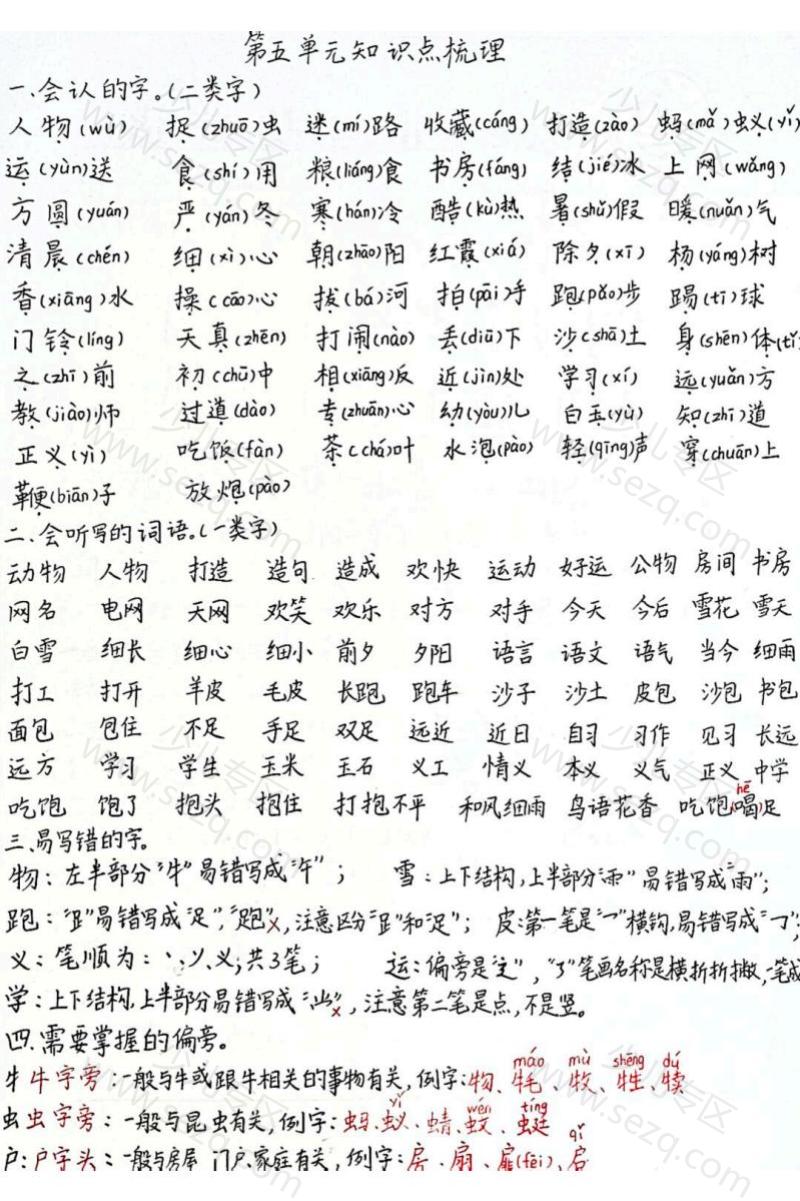 第五单元知识点梳理
一、会认的字。(二类字)
人物(wù) 捉(zhuō)虫 迷(mí)路 收藏(cáng) 打造(zào) 蚂(mǎ)蚁(yǐ)
运(yùn)送 食(shí)用 粮(liáng)食 书房(fáng) 结(jié)冰 上网(wǎng)
方圆(yuán) 严(yán)冬 寒(hán)冷 酷(kù)热 暑(shǔ)假 暖(nuǎn)气
清晨(chén) 细(xì)心 朝(zhāo)阳 红霞(xiá) 除夕(xī) 杨(yáng)树
香(xiāng)水 操(cāo)心 拔(bá)河 拍(pāi)手 跑(pǎo)步 踢(tī)球
门铃(líng) 天真(zhēn) 打闹(nào) 丢(diū)下 沙(shā)土 身(shēn)体(tǐ
之(zhī)前 初(chū)中 相(xiāng)反 近(jìn)处 学习(xí) 远(yuǎn)方
教(jiào)师 过道(dào) 专(zhuān)心 幼(yòu)儿 白玉(yù) 知(zhī)道
正义(yì) 吃饭(fàn) 茶(chá)叶 水泡(pào) 轻(qīng)声 穿(chuān)上
鞭(biān)子 放炮(pào)
二、会听写的词语。(一类字)
动物 人物 打造 造句 造成 欢快 运动 好运 公物 房间 书房
网名 电网 天网 欢笑 欢乐 对方 对手 今天 今后 雪花 雪天
白雪 细长 细心 细小 前夕 夕阳 语言 语文 语气 当今 细雨
打工 打开 羊皮 毛皮 长跑 跑车 沙子 沙土 皮包 沙包 书包
面包 包住 不足 手足 双足 远近 近日 自习 习作 见习 长远
远方 学习 学生 玉米 玉石 义工 情义 本义 义气 正义 中学
吃饱 饱了 抱头 抱住 打抱不平 和风细雨 鸟语花香 吃饱喝(hē)足
三、易写错的字。
物：左半部分“牜”易错写成“午”； 雪：上下结构,上半部分“⻗”易错写成“雨”；
跑：“𧾷”易错写成“足”,“跑”×,注意区分“𧾷”和“足”； 皮:第一笔是“乛”横钩,易错写成“㇆”；
义：笔顺为：丶、丷、义;共3笔； 运:偏旁是“辶”,“㇋”笔画名称是横折折撇,一笔成
学：上下结构,上半部分易错写成“𭕄”×,注意第二笔是点,不是竖。
四、需要掌握的偏旁。
牜牛字旁：一般与牛或跟牛相关的事物有关,例字:物、牦(máo)、牧(mù)、牲(shēng)、犊(dú)
虫虫字旁：一般与昆虫有关,例字：蚂、蚁(yǐ)、蜻、蚊(wén)、蜓(tíng)
户:户字头：一般与房屋 门户、家庭有关,例字:房、扇、扉(fēi)、启(qǐ)
少儿专区
www.sezq.com